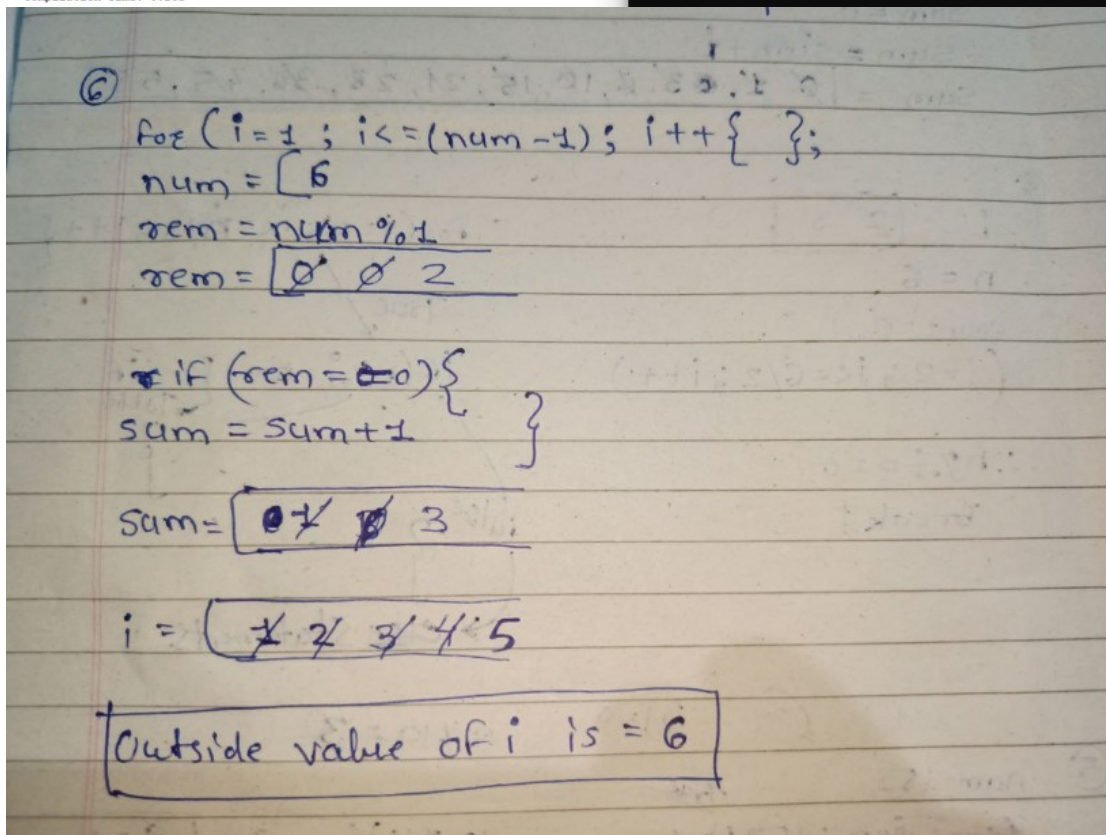 6
for (i=1 ; i<=(num-1); i++{ };
num = 6
rem = num%1
rem = 0 0 2
if (rem = =0){
sum = sum+1 }
sum= 0 1 3
i = 1 2 3 4 5
Outside value of i is = 6